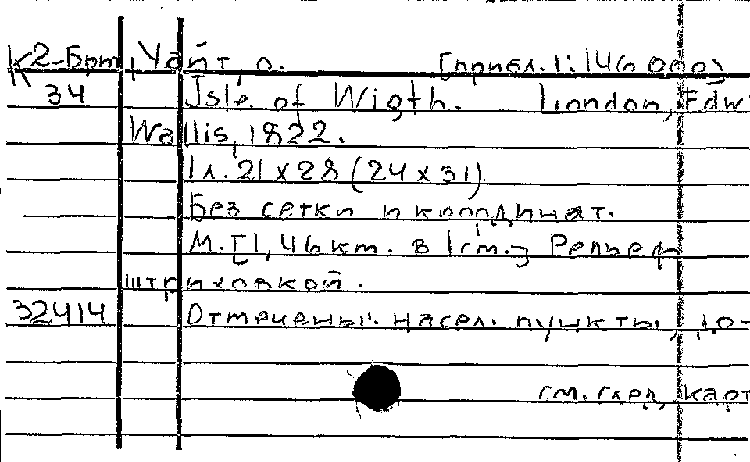 К2-Брт Уайт, о. [прибл. 1:146 000]
34 Isle of Wigth. London, Edw
Wallis, 1822.
1 л. 21 x 28 (24 x 31)
Без сетки и координат.
М. [1,46 км. в 1 см.] Рельеф
штриховкой.
32414 Отмечены: насел. пункты, до-
см. след. карт